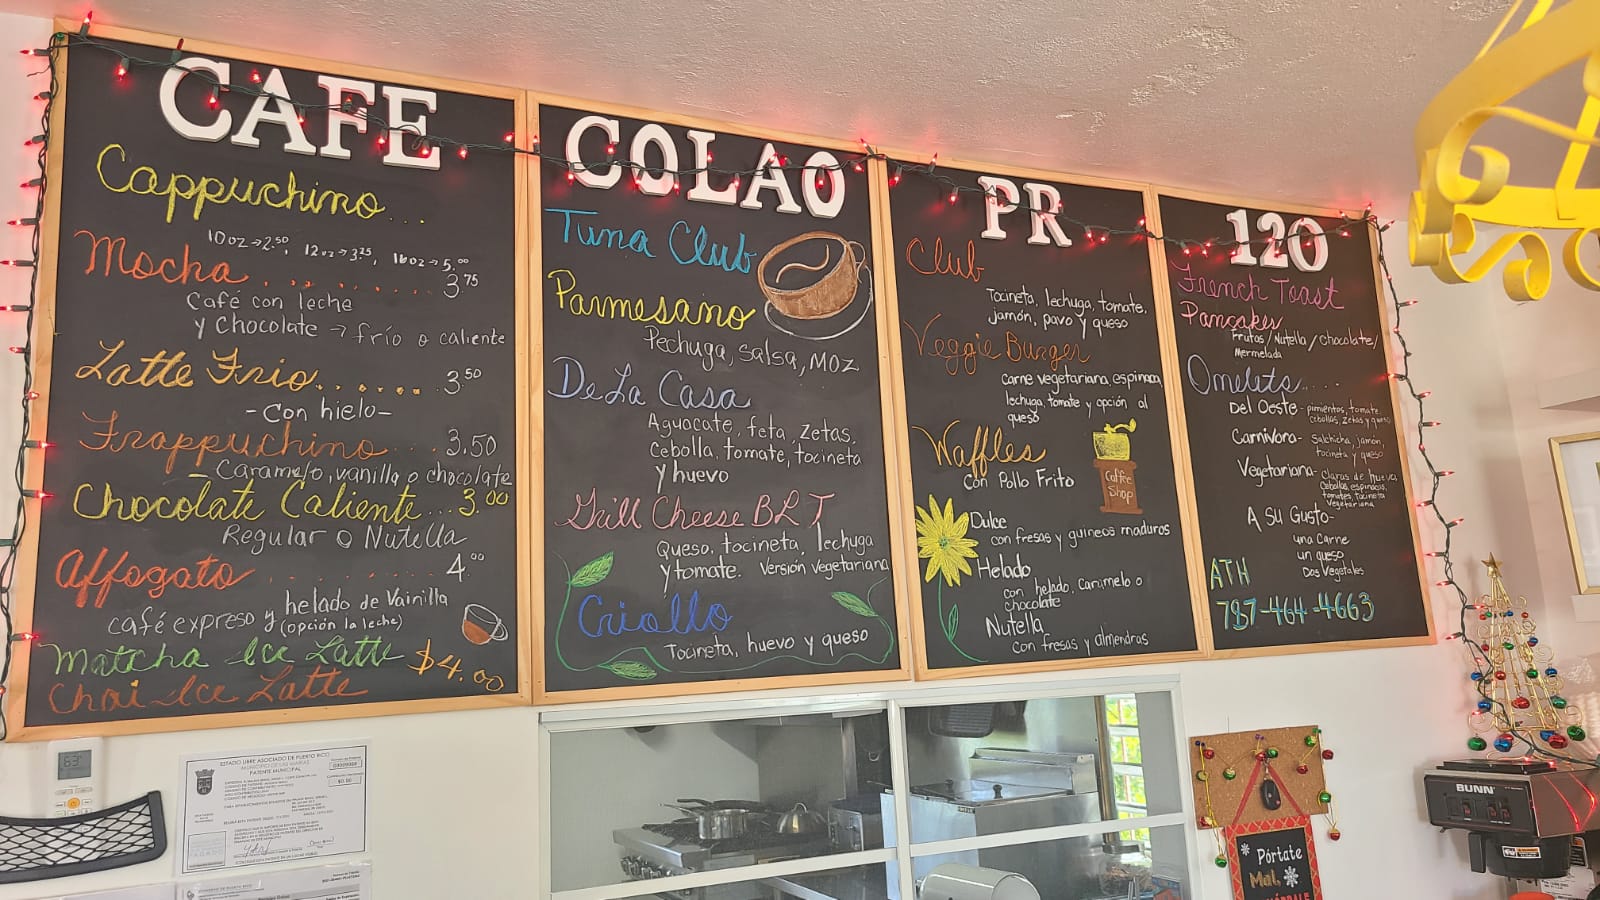 CAFE
Cappuchino...
10oz→2.50, 12oz→3.25, 16oz→5.00
Mocha ........ 3.75
Café con leche
y chocolate → frío o caliente
Latte Frio........ 3.50
-con hielo-
Frappuchino... 3.50
-Caramelo, vanilla o chocolate
Chocolate Caliente... 3.00
Regular o Nutella
Affogato ........ 4.00
café expreso y helado de Vainilla
(opción la leche)
Matcha Ice Latte $4.00
Chai Ice Latte
COLAO
Tuna Club
Parmesano
Pechuga, salsa, MOZ
De La Casa
Aguacate, feta, zetas,
Cebolla, tomate, tocineta
y huevo
Grill Cheese BLT
Queso, tocineta, lechuga
y tomate. Versión vegetariana
Criollo
Tocineta, huevo y queso
PR
Club
Tocineta, lechuga, tomate,
jamón, pavo y queso
Veggie Burger
Carne vegetariana, espinaca,
lechuga, tomate y opción al
queso
Waffles
con Pollo Frito
Coffee
Shop
Dulce
con fresas y guineos maduros
Helado
con helado, caramelo o
chocolate
Nutella
con fresas y almendras
120
French Toast
Pancakes
Frutas/Nutella/chocolate/
Mermelada
Omelets....
Del Oeste- pimientos, tomate,
cebollas, zetas y queso
Carnívora- salchicha, jamón,
tocineta y queso
Vegetariana- claras de huevo,
cebollas, espinacas,
tomates, tocineta
vegetariana
A Su Gusto-
una Carne
un queso
Dos Vegetales
ATH
787-464-4663
ESTADO LIBRE ASOCIADO DE PUERTO RICO
MUNICIPIO DE LAS MARIAS
PATENTE MUNICIPAL
BUNN
Pórtate
Mal,